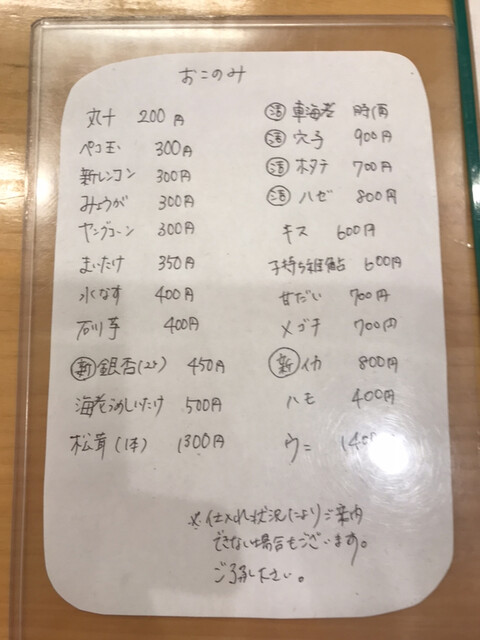 おこのみ
丸十 200円
ペコ玉 300円
新レンコン 300円
みょうが 300円
ヤングコーン 300円
まいたけ 350円
水なす 400円
石川芋 400円
新 銀杏(2ケ) 450円
海老うめしいたけ 500円
松茸(1本) 1300円
活 車海老 時価
活 穴子 900円
活 ホタテ 700円
活 ハゼ 800円
キス 600円
子持ち稚鮎 600円
甘だい 700円
メゴチ 700円
新 イカ 800円
ハモ 400円
ウニ
※仕入れ状況によりご案内
できない場合もございます。
ご了承ください。